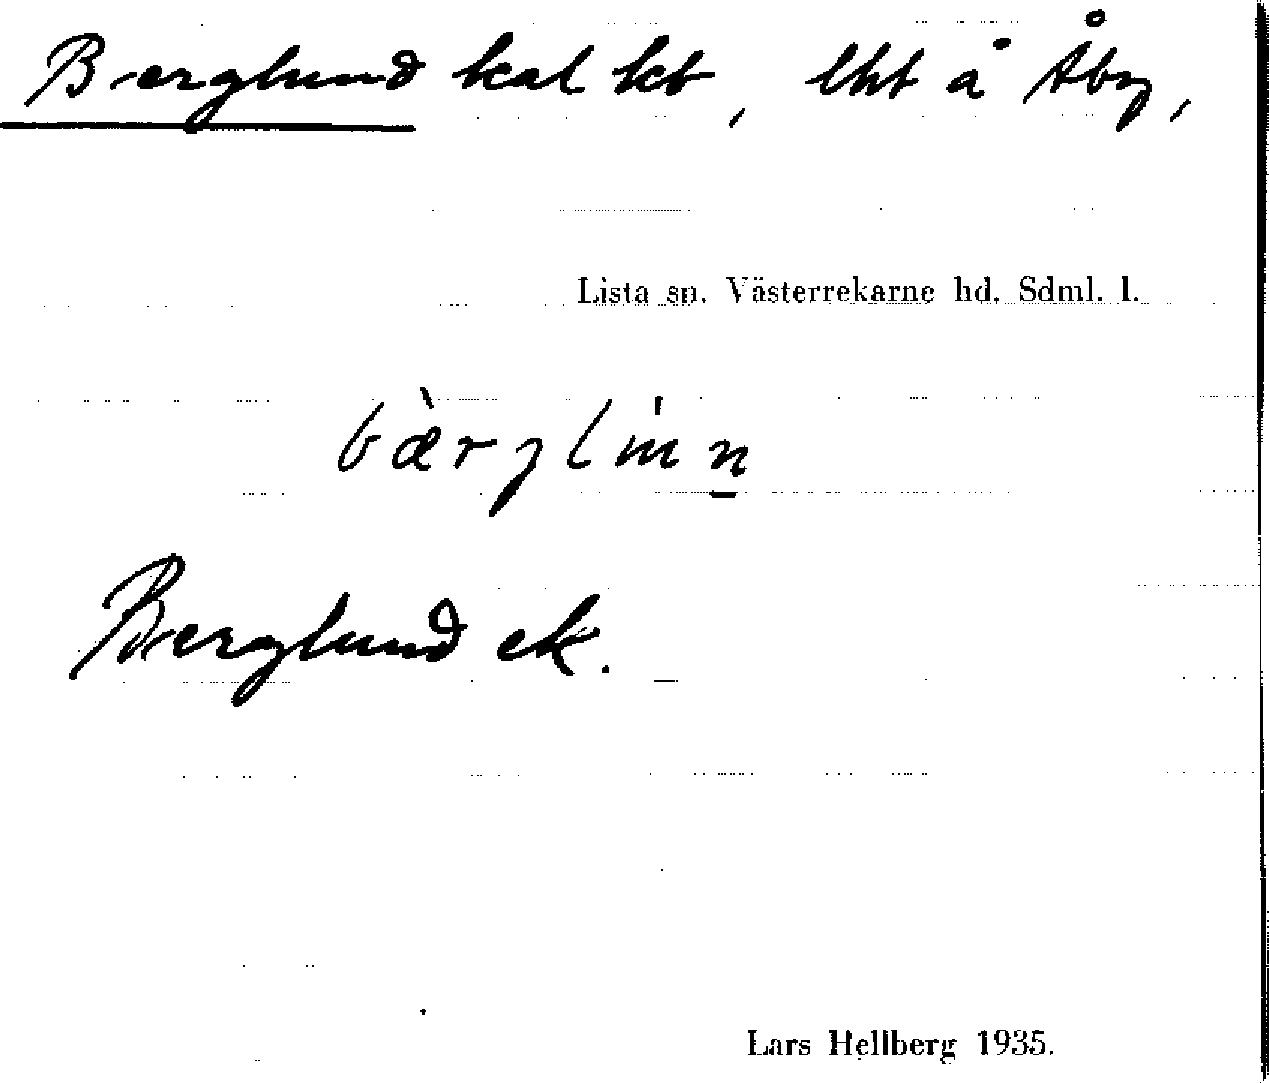 Berglund kal kt, lht å Åby,
Lista sn. Västerrekarne hd. Sdml. l.
Berglund ek.
Lars Hellberg 1935.